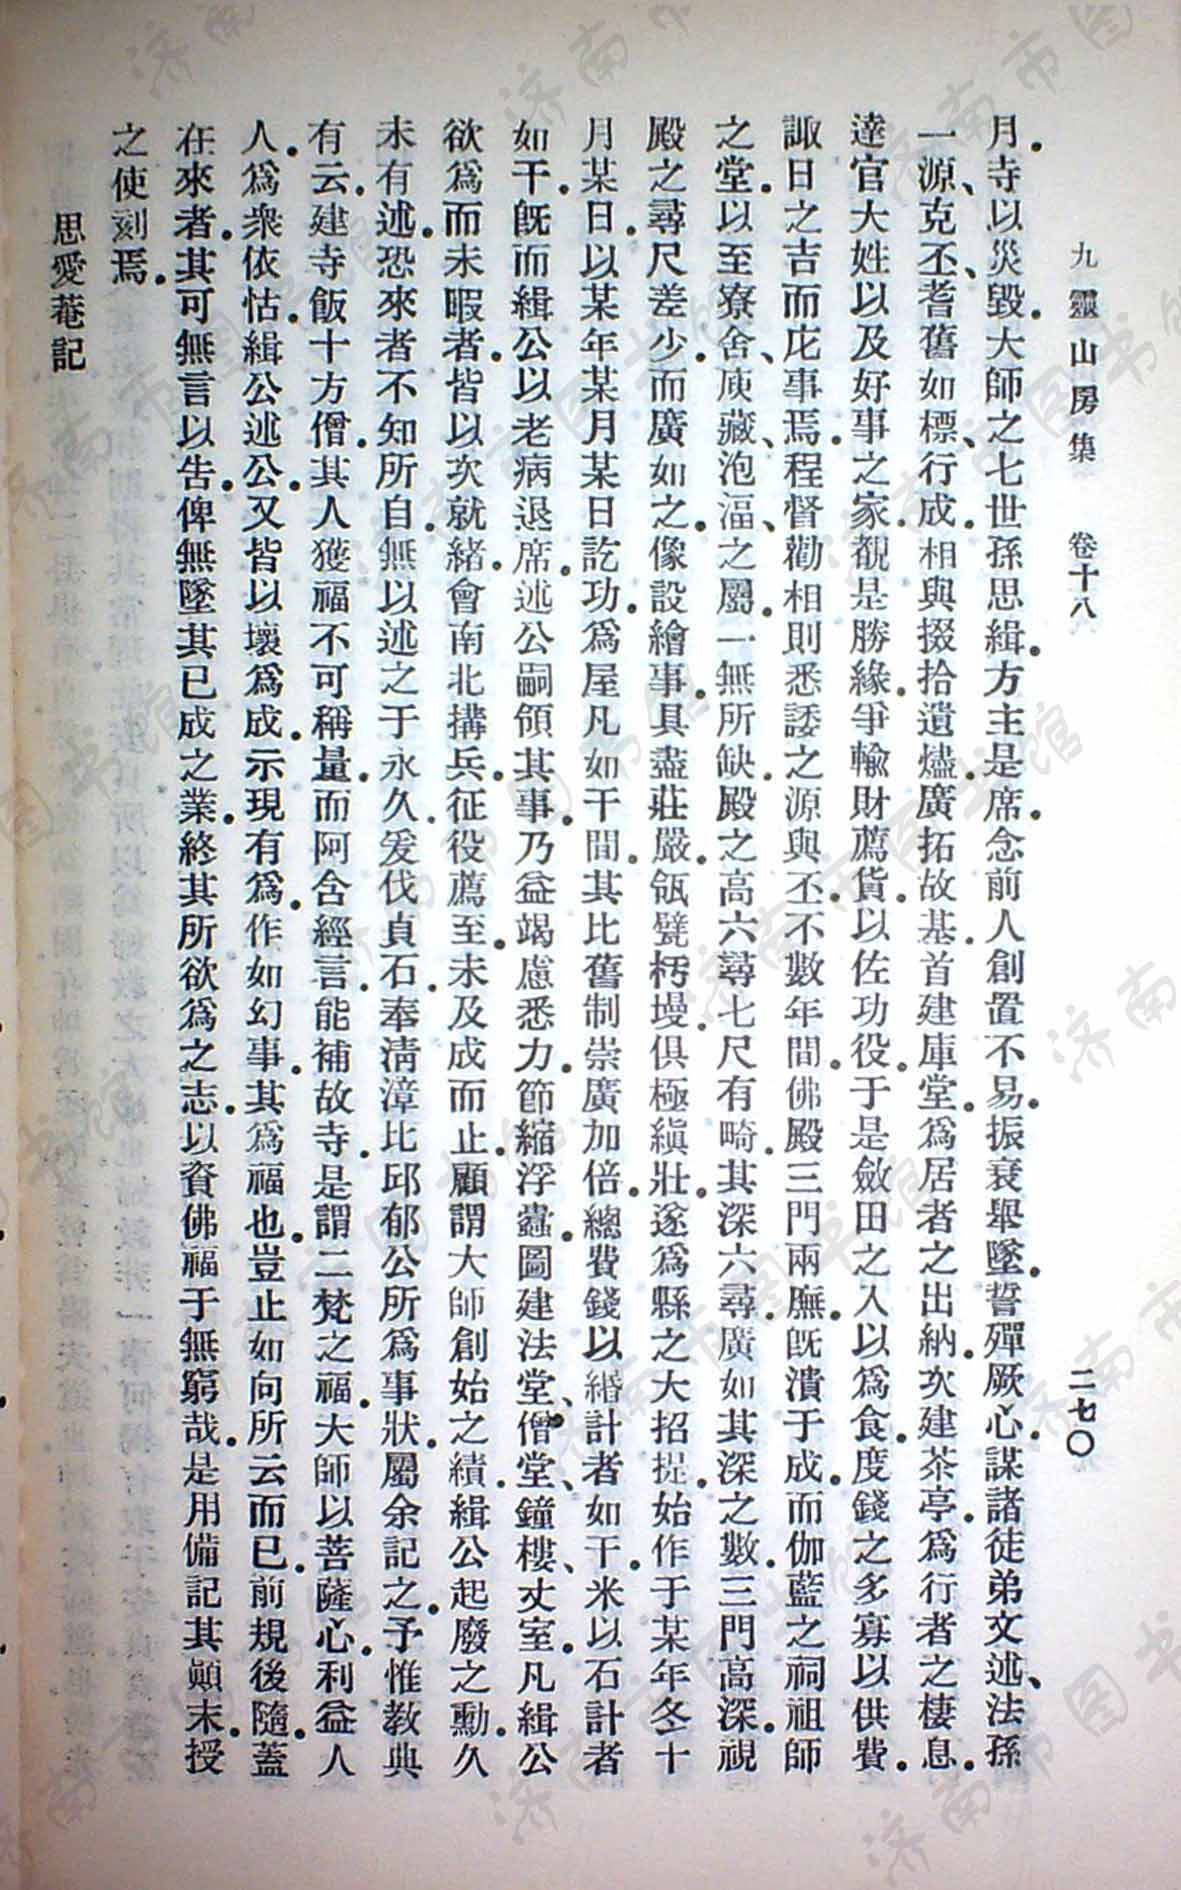 九靈山房集　卷十八　二七〇
月。寺以災毀。大師之七世孫思緝。方主是席。念前人創置不易。振衰舉墜。誓殫厥心。謀諸徒弟文述、法孫
一源、克丕、耆舊如標、行成。相與掇拾遺燼。廣拓故基。首建庫堂。爲居者之出納。次建茶亭。爲行者之棲息。
達官大姓以及好事之家。覩是勝緣。爭輸財薦貨。以佐功役。于是斂田之入以爲食。度錢之多寡以供費。
諏日之吉而庀事焉。程督勸相。則悉諉之源與丕。不數年間。佛殿三門兩廡。旣潰于成。而伽藍之祠祖師
之堂。以至寮舍、庾藏、泡湢、之屬。一無所缺。殿之高六尋七尺有畸。其深六尋。廣如其深之數。三門高深。視
殿之尋尺差少。而廣如之。像設繪事。具盡莊嚴。瓴甓杇墁。俱極縝壯。遂爲縣之大招提。始作于某年冬十
月某日。以某年某月某日訖功。爲屋凡如干間。其比舊制崇廣加倍。總費錢以緡計者如干。米以石計者
如干。旣而緝公以老病退席。述公嗣領其事。乃益竭慮悉力。節縮浮蠹。圖建法堂、僧堂、鐘樓、丈室。凡緝公
欲爲而未暇者。皆以次就緒。會南北搆兵。征役薦至。未及成而止。顧謂大師創始之績。緝公起廢之勳。久
未有述。恐來者不知所自。無以述之于永久。爰伐貞石。奉淸漳比邱郁公所爲事狀。屬余記之。予惟教典
有云。建寺飯十方僧。其人獲福不可稱量。而阿含經言。能補故寺。是謂二梵之福。大師以菩薩心。利益人
人。爲衆依怙。緝公述公。又皆以壞爲成。示現有爲。作如幻事。其爲福也。豈止如向所云而已。前規後隨。蓋
在來者。其可無言以吿。俾無墜其已成之業。終其所欲爲之志。以資佛福于無窮哉。是用備記其顚末。授
之使刻焉。
思愛菴記